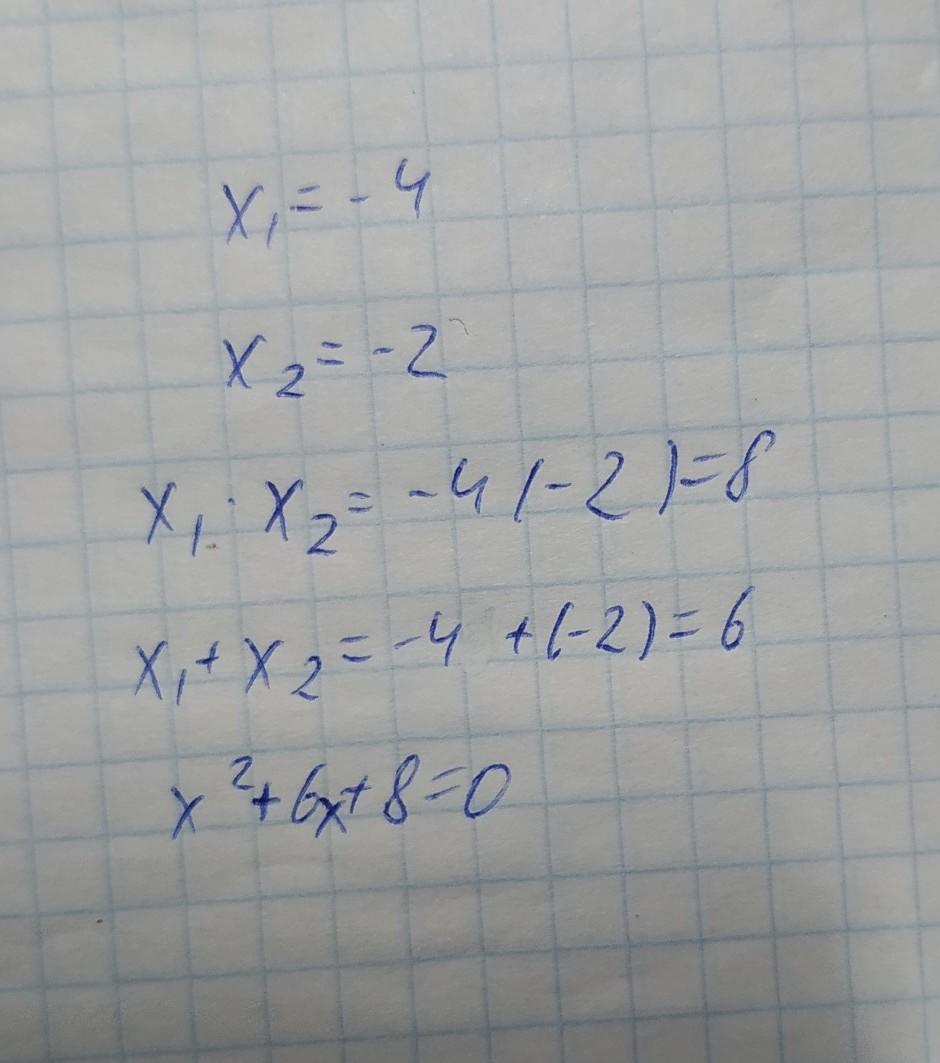 x₁ = -4
x₂ = -2
x₁ · x₂ = -4 (-2) = 8
x₁ + x₂ = -4 + (-2) = 6
x² + 6x + 8 = 0